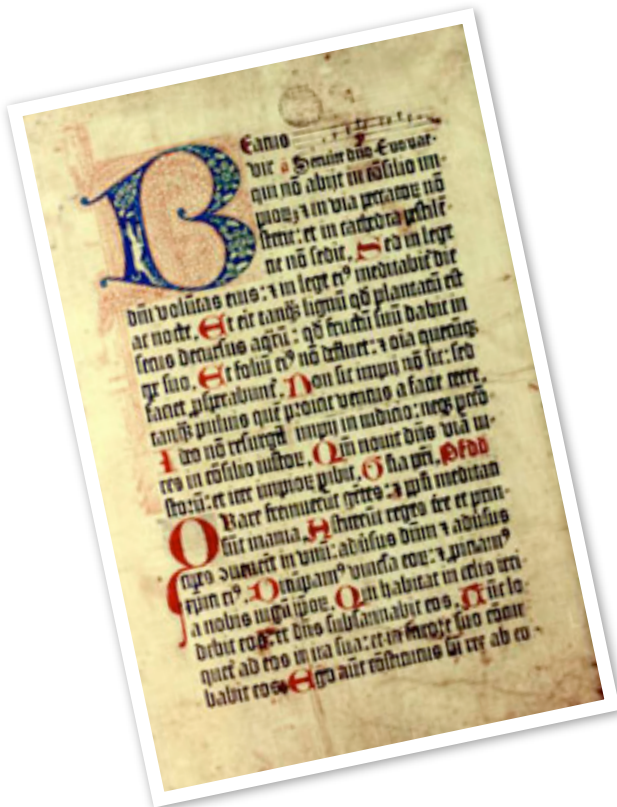 Eatus
vir Seruite dño Euouae
qui nõ abijt in cõsilio im-
pioꝝ ⁊ in via pctatoꝝ nõ
stetit: et in cathedra pestilẽ-
tie nõ sedit. Sed in lege
dñi volũtas eius: ⁊ in lege eiꝰ meditabit̃ die
ac nocte. Et erit tanq̃ƺ lignũ qd̃ plantatũ est
secus decursus aq̃rũ: qd̃ fructũ suũ dabit in
tꝑe suo. Et foliũ eiꝰ nõ defluet: ⁊ oĩa quecũq̃ƺ
faciet ꝓsperabunt̃. Non sic impij nõ sic: sed
tanq̃ƺ puluis quẽ proicit ventus a facie terre.
Ideo nõ resurgẽt impij in iudicio: neqƺ pctõ-
res in cõsilio iustoꝝ. Qm̃ nouit dñs viã iu-
stoꝝ: et iter impioꝝ peribit. Gloria pr̃i.
Quare fremuerũt gẽtes: ⁊ ppłi meditati
sũt inania. Astiterũt reges tre et prin-
cipes ... in vnũ: aduersus dñm ⁊ aduersus
xpm̃ eiꝰ. Dirũpamꝰ vincła eoꝝ: ⁊ ꝓiciamꝰ
a nobis iugũ ip̃oꝝ. Qui habitat in celis irri-
debit eos: et dñs subsannabit eos. Tũc lo-
quet̃ ad eos in ira sua: et in furore suo cõtur-
babit eos. Ego aũt cõstitutus sũ rex ab eo